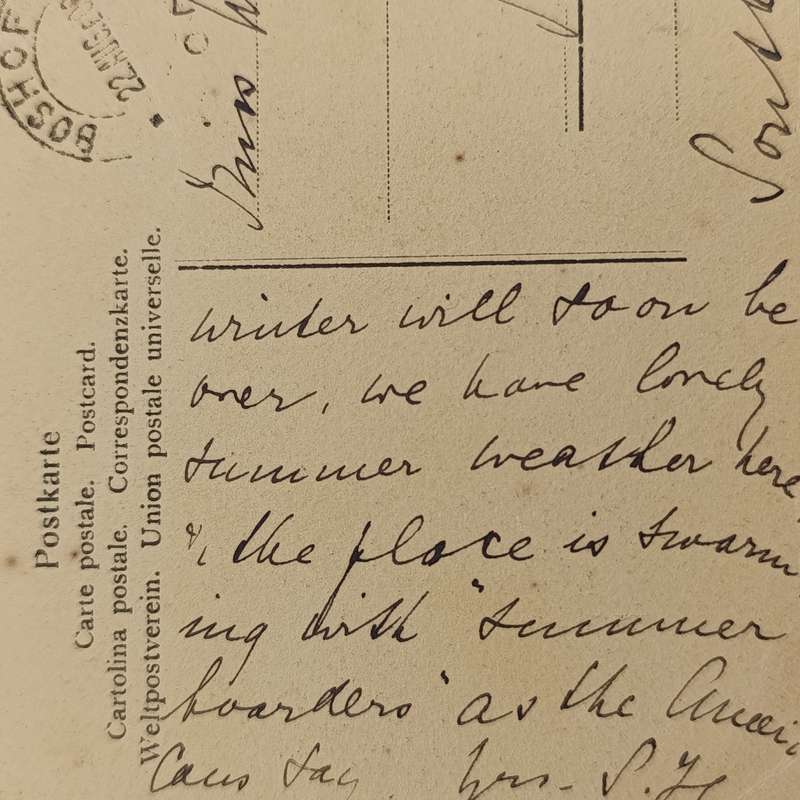 BOSHOF
22 AUG
Miss
Postkarte
Carte postale. Postcard.
Cartolina postale. Correspondenzkarte.
Weltpostverein. Union postale universelle.
winter will soon be
over, we have lovely
summer weather here
& the place is swarm
ing with "summer
boarders" as the Ameri
cans say. Yrs-